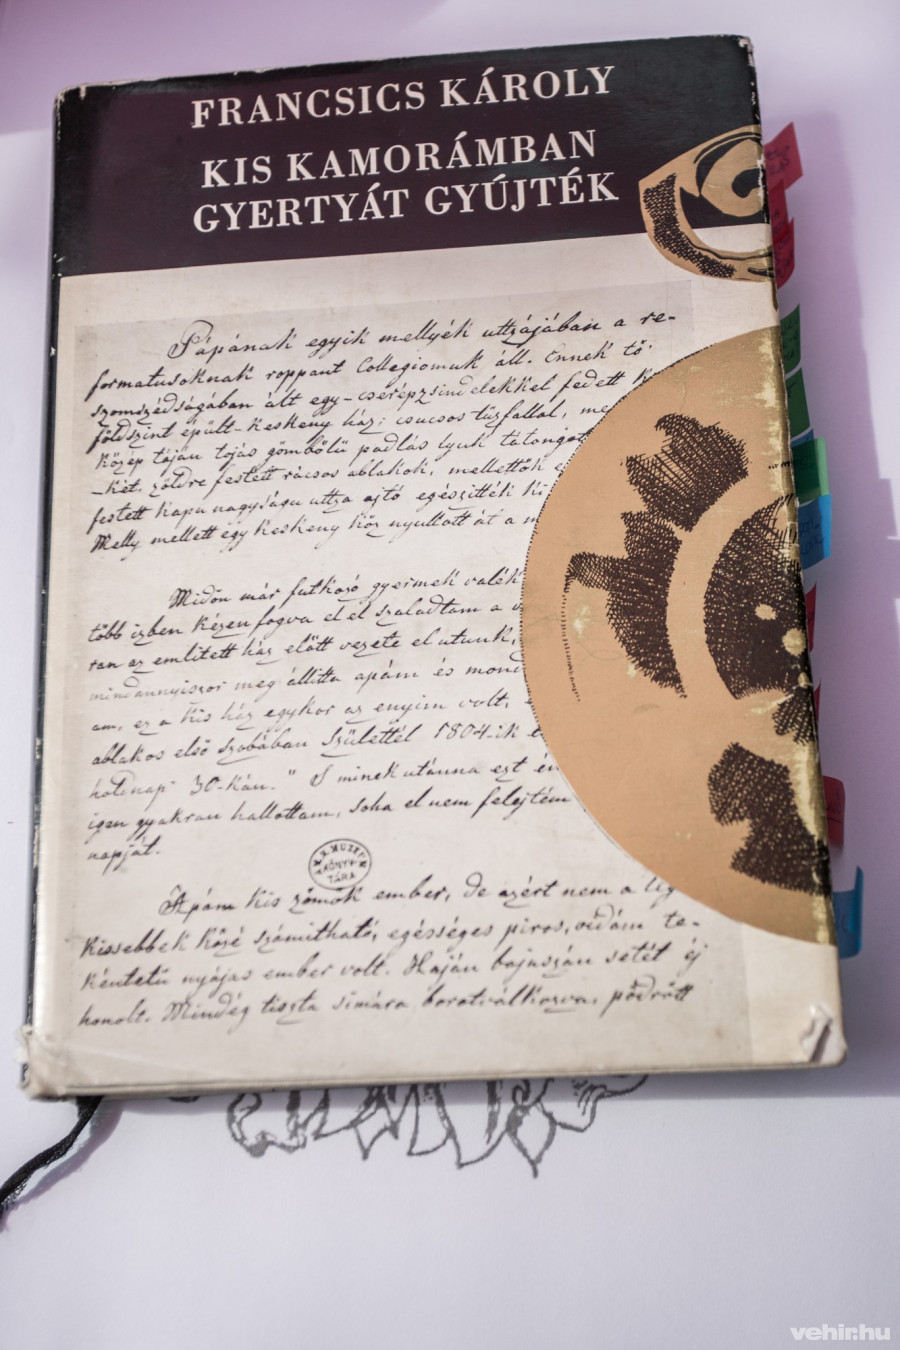 FRANCSICS KÁROLY
KIS KAMORÁMBAN
GYERTYÁT GYÚJTÉK
Pápának egyik mellyék uttzájában a re-
formatusoknak roppant Collegiomuk áll. Ennek tő
szomszédságában ált egy-cserépzsindelekkel fedett
földszint épült-keskeny ház; csucsos tüzfallal,
közép táján tojás gömbölü padlás lyuk tátongot
-két. zöldre festett rácsos ablakok, mellettök
festett kapu nagyságu uttza ajtó egészitték ki
Melly mellett egy keskeny köz nyullott át a
Midőn már futkozó gyermek valék
több izben kezen fogva el el szaladtam a
ran az emlitett ház előtt vezete el utunk,
mindannyiszor meg állitta apám és mond
am, ez a kis ház egykor az enyim volt,
ablakos első szobában születtél 1804-ik
hóldnap 30-kán." S minekutánna ezt én
igen gyakran hallottam, soha el nem felejtém
napját.
MUZEUM
KÖNYV-
TÁRA
Apám kis zömök ember, de azért nem a leg
kissebbek közé számitható, egésséges piros, vidám te-
kéntetü nyájas ember volt. Haján bajuszán setét éj
honolt. Mindég tiszta simára borotválkozva, pödrött
vehir.hu